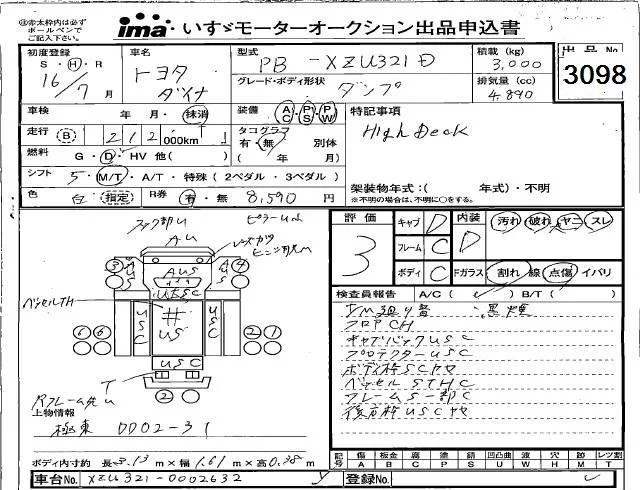 ※赤太枠内は必ず
ボールペンで
ご記入下さい。
ima いすゞモーターオークション出品申込書
初度登録
S・H・R
16/7 月
車名
トヨタ
ダイナ
型式
PB-XZU321D
グレード・ボディ形状
ダンプ
積載 (kg)
3,000
排気量 (cc)
4,890
出品No.
3098
車検 年・月・抹消
装備 AC・PS・PW
特記事項
High Deck
走行 B 212 000km
タコグラフ
有・無 別体
( 年 月)
燃料 G・D・HV 他( )
シフト 5・M/T・A/T・特殊(2ペダル・3ペダル)
色 白 指定 R券 有・無 8,590 円
架装物年式:( 年式)・不明
※不明の場合は、不明に○をする。
評価
3
キャブ D
フレーム C
ボディ C
内装 D
汚れ・破れ・ヤニ・スレ
Fガラス 割れ・線・点傷・イバリ
検査員報告 A/C( ) B/T( )
黒煙
フロアCH
キャブバックUSC
プロテクターUSC
ボディ枠SCヤ
ベッセルSTHC
フレームS一部C
後方枠USCヤ
ピラーU
AU
AUS
USC
US
USC
T
ベッセルTH
上物情報
極東 DD02-31
ボディ内寸約 長 3.13 m×幅 1.61 m×高 0.38 m
記号 A傷 B板金 C腐 P塗 S錆 U凹凸曲 W波 H穴 M跡 T レツ割
車台No. XZU321-0002632
登録No.